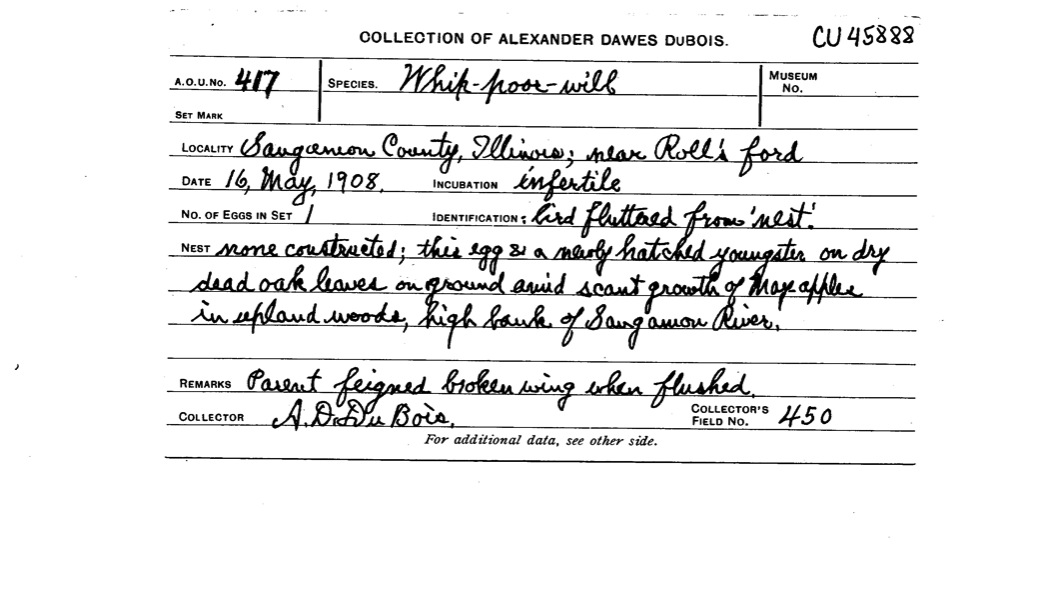 COLLECTION OF ALEXANDER DAWES DUBOIS. CU 45888
A.O.U. No. 417 SPECIES. Whip-poor-will MUSEUM No.
SET MARK
LOCALITY Sangamon County, Illinois; near Roll's ford
DATE 16, May, 1908. INCUBATION infertile
NO. OF EGGS IN SET 1 IDENTIFICATION: bird fluttered from 'nest'.
NEST none constructed; this egg & a newly hatched youngster on dry
dead oak leaves on ground amid scant growth of May apples
in upland woods, high bank of Sangamon River.
REMARKS Parent feigned broken wing when flushed.
COLLECTOR A. D. Du Bois. COLLECTOR'S FIELD No. 450
For additional data, see other side.